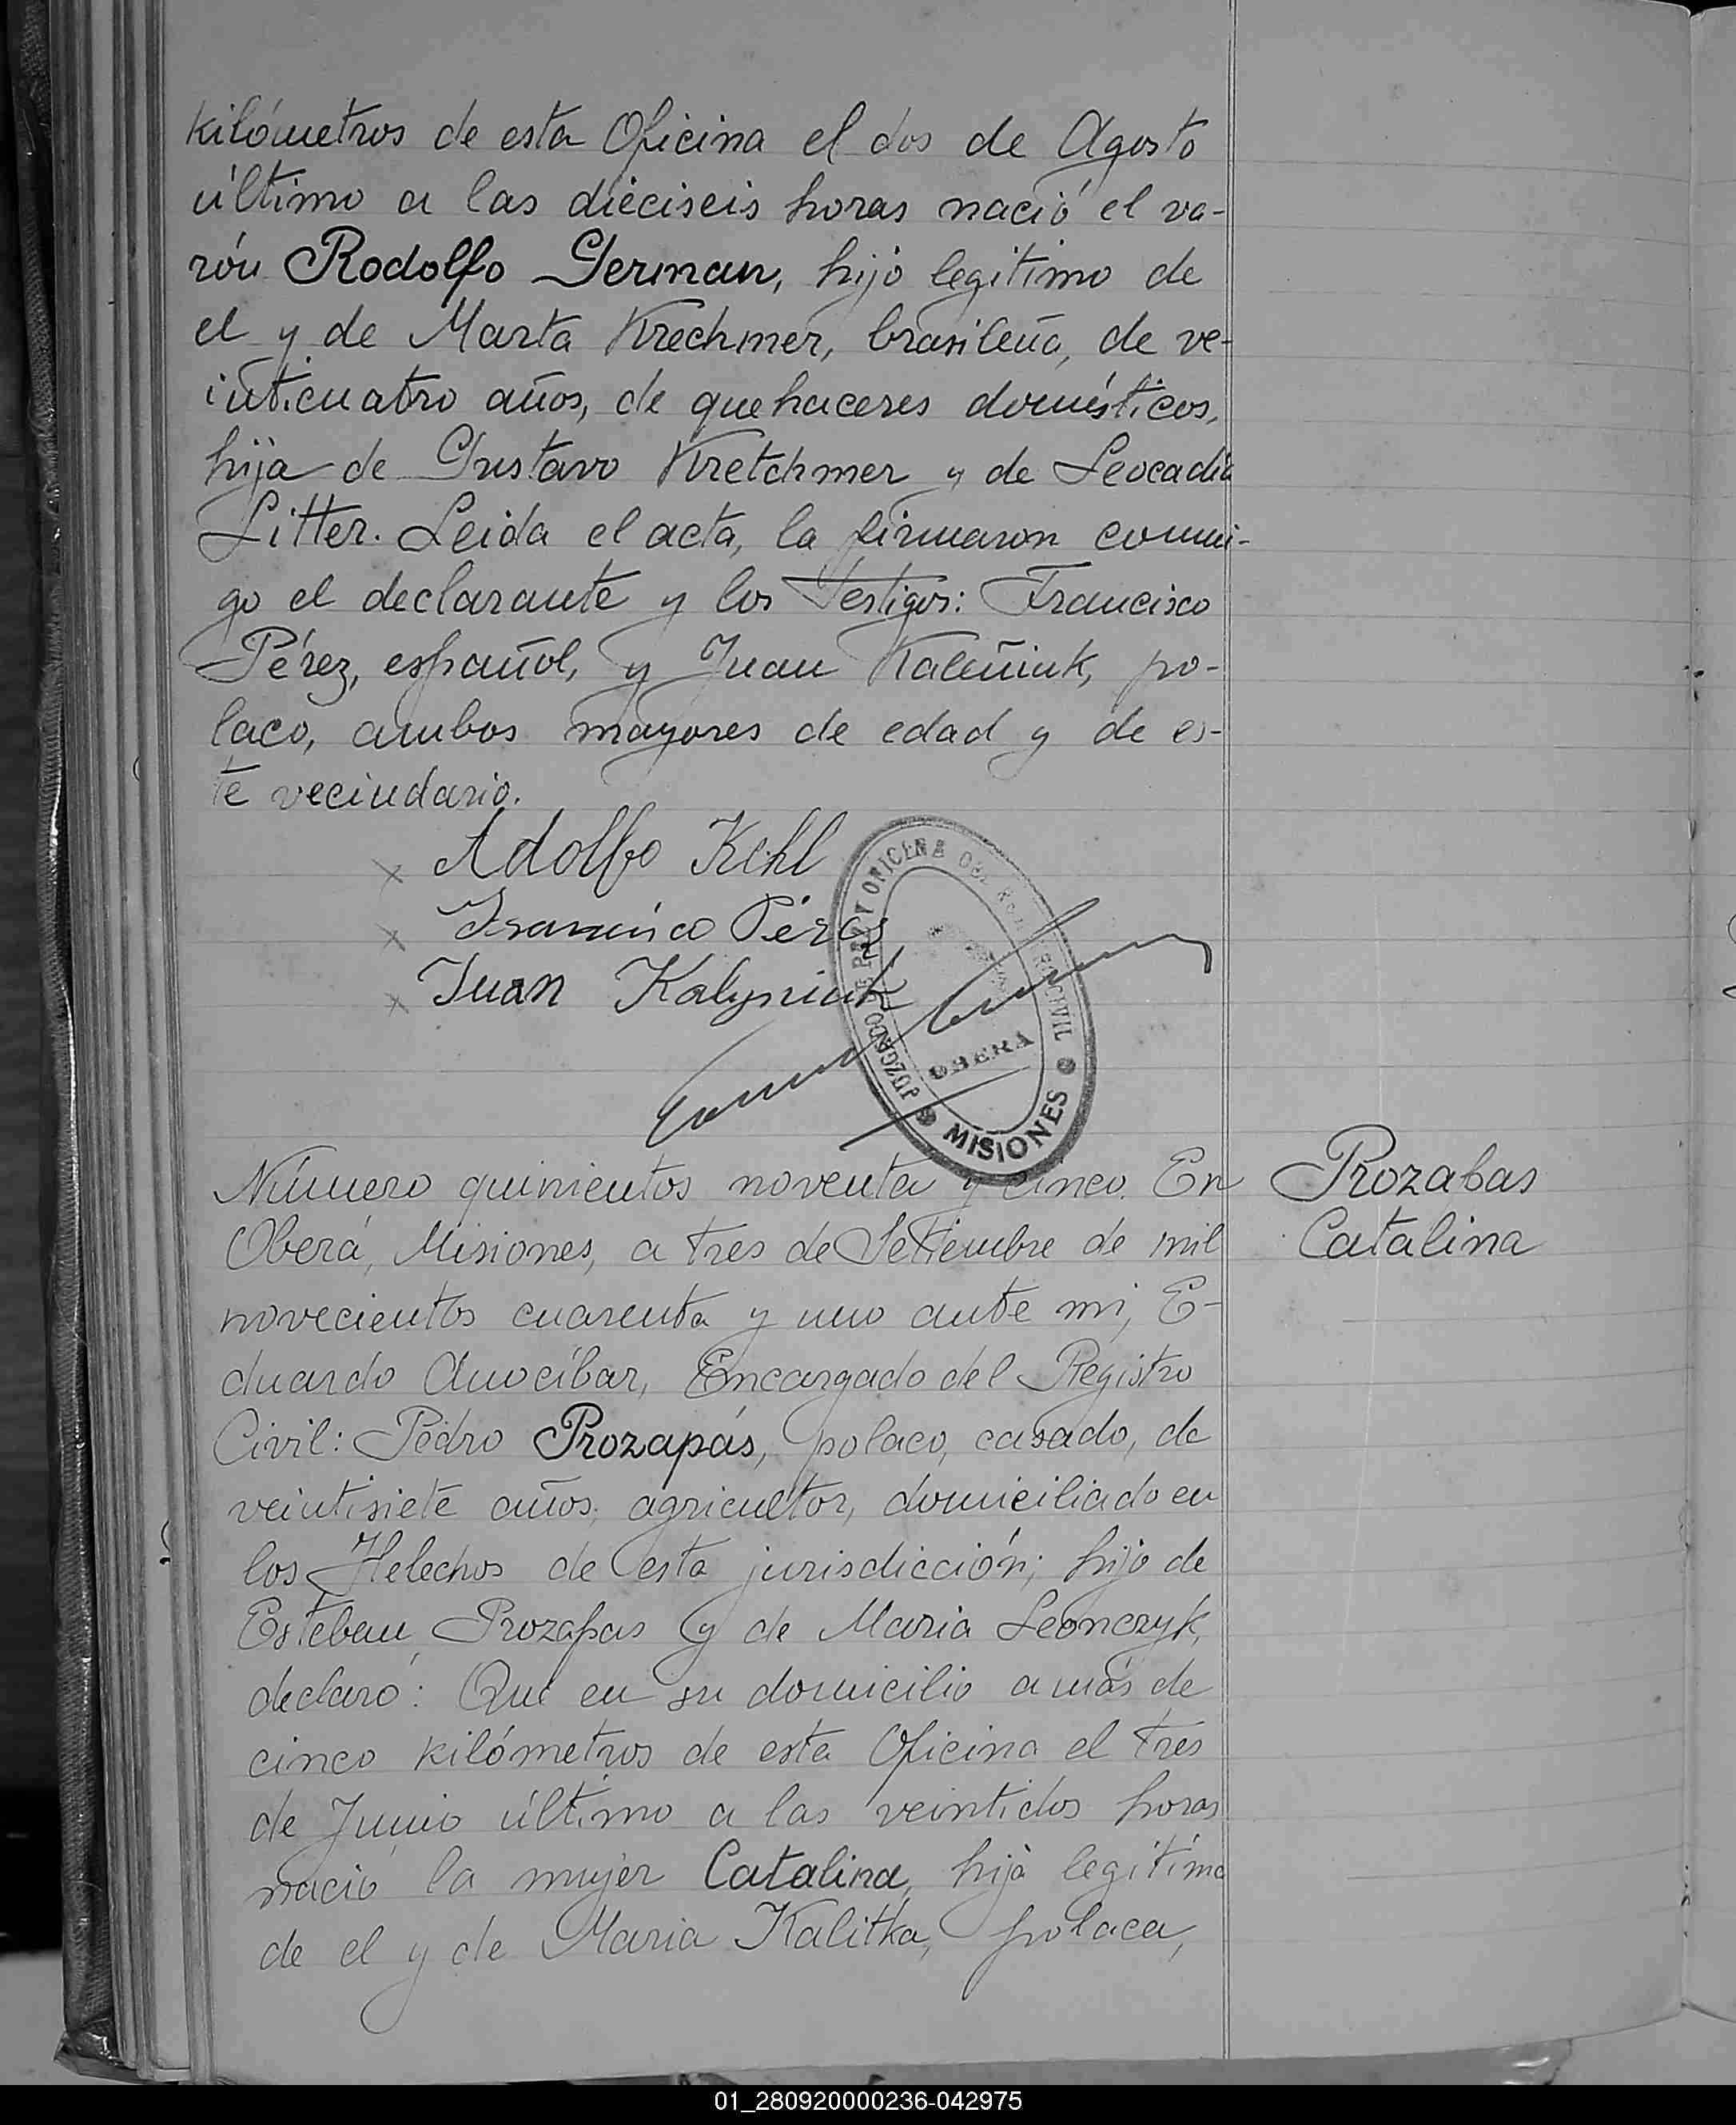 kilómetros de esta Oficina el dos de Agosto
último a las dieciseis horas nació el va-
rón Rodolfo German, hijo legitimo de
el y de Marta Krechmer, brasileña, de ve-
inticuatro años, de quehaceres domésticos,
hija de Gustavo Kretchmer y de Leocadia
Litter. Leida el acta, la firmaron conmi-
go el declarante y los Testigos: Francisco
Pérez, español, y Juan Kaleñiuk, po-
laco, ambos mayores de edad y de es-
te vecindario.
x Adolfo Kehl
x Francisco Pérez
x Juan Kalyniuk
JUZGADO DE PAZ Y OFICINA DEL REGISTRO CIVIL
OBERA
MISIONES
Número quinientos noventa y cinco. En
Oberá, Misiones, a tres de Setiembre de mil
novecientos cuarenta y uno ante mi, E-
duardo Anocíbar, Encargado del Registro
Civil: Pedro Prozapás, polaco, casado, de
veintisiete años, agricultor, domiciliado en
los Helechos de esta jurisdicción; hijo de
Esteban Prozapas y de Maria Leonczyk,
declaró: Que en su domicilio a más de
cinco kilómetros de esta Oficina el tres
de Junio último a las veintidos horas
nació la mujer Catalina, hija legítima
de el y de Maria Kalitka, polaca,
Prozabas
Catalina
01_280920000236-042975